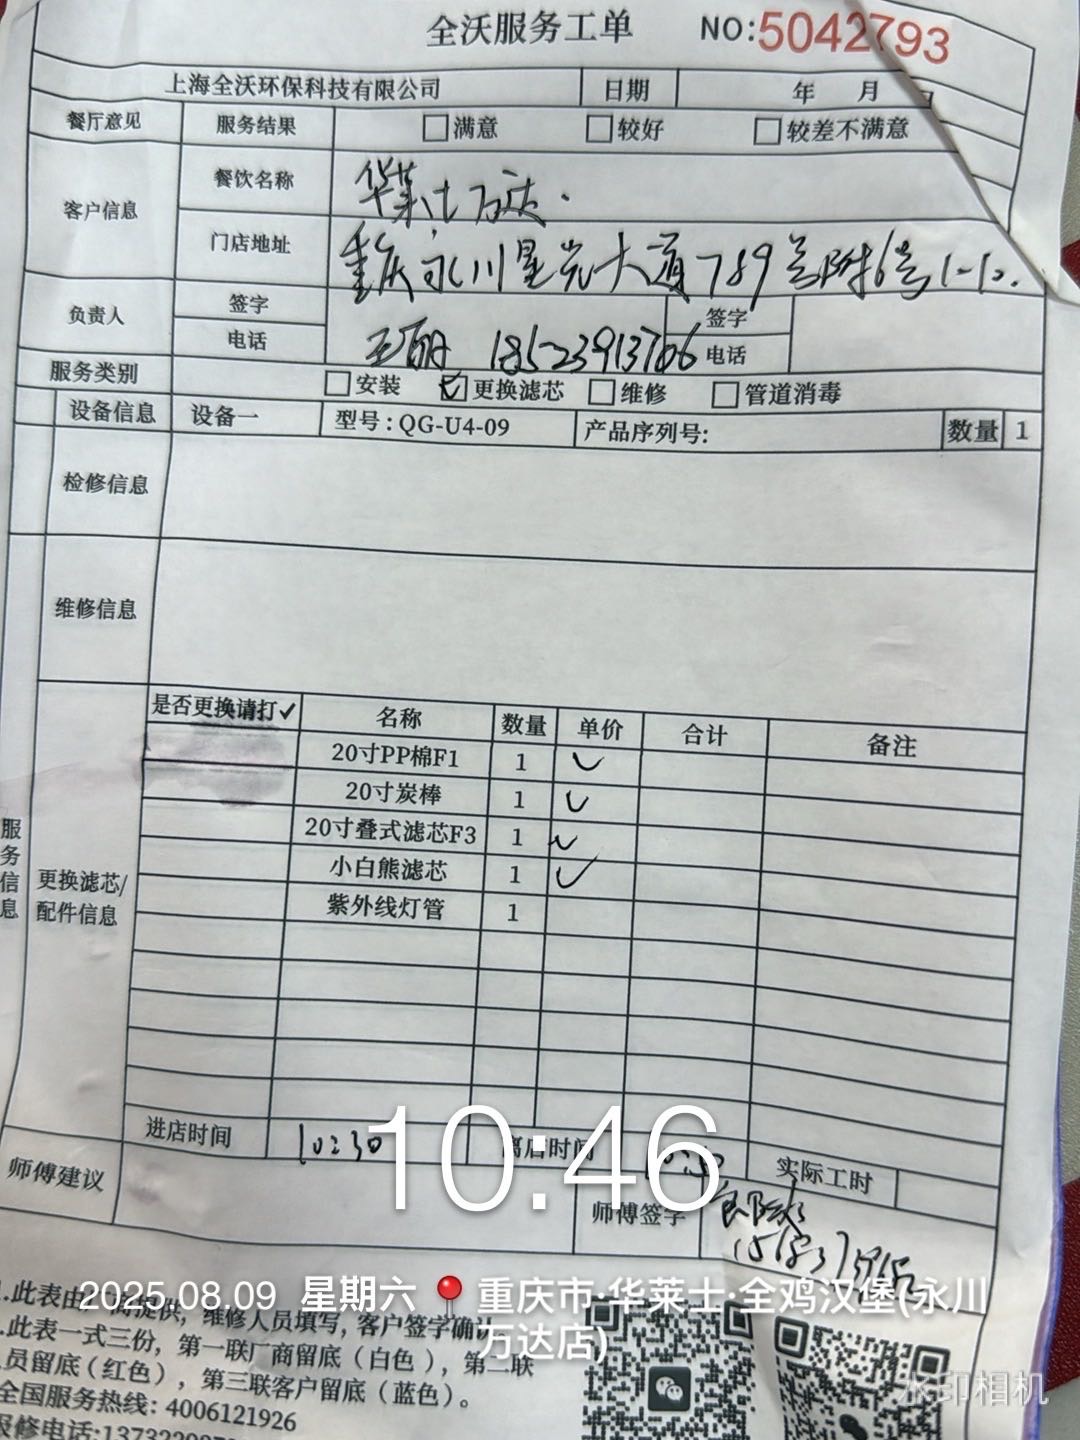 全沃服务工单 NO:5042793
上海全沃环保科技有限公司 日期 年 月
餐厅意见 服务结果 满意 较好 较差不满意
客户信息 餐饮名称 华莱士万达.
门店地址 重庆永川星光大道789号附6号1-12.
负责人 签字 签字
电话 王丽 18523913706 电话
服务类别 安装 更换滤芯 维修 管道消毒
设备信息 设备一 型号:QG-U4-09 产品序列号: 数量 1
检修信息
维修信息
服务信息
更换滤芯/配件信息
是否更换请打✓ 名称 数量 单价 合计 备注
20寸PP棉F1 1 ✓
20寸炭棒 1 ✓
20寸叠式滤芯F3 1 ✓
小白熊滤芯 1 ✓
紫外线灯管 1
进店时间 10:30 离店时间 实际工时
10:46
师傅建议 师傅签字
2025.08.09 星期六 重庆市·华莱士·全鸡汉堡(永川万达店)
.此表由 提供,维修人员填写,客户签字确认。
.此表一式三份,第一联厂商留底(白色),第二联
员留底(红色),第三联客户留底(蓝色)。
全国服务热线:4006121926
报修电话:13732
水印相机